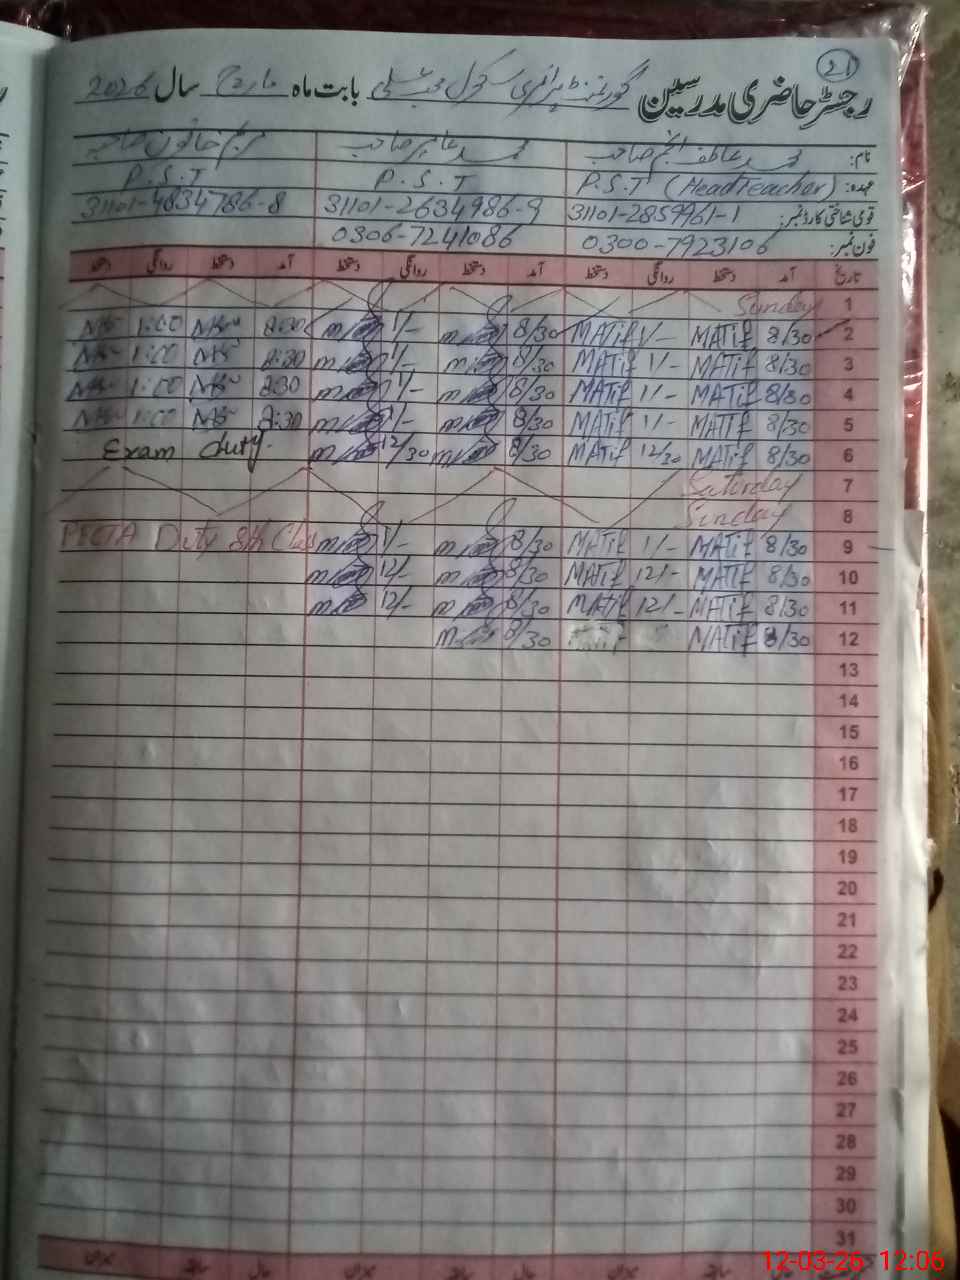 21
رجسٹر حاضری مدرسین گورنمنٹ پرائمری سکول بابت ماہ مارچ سال 2026
نام: محمد عاطف انجم صاحب محمد عامر صاحب مریم خاتون صاحبہ
عہدہ: P.S.T (Head Teacher) P.S.T P.S.T
قومی شناختی کارڈ نمبر: 31101-2859961-1 31101-2634986-9 31101-4834786-8
فون نمبر: 0300-7923106 0306-7241086
تاریخ آمد دستخط روانگی دستخط آمد دستخط روانگی دستخط آمد دستخط روانگی دستخط
1 Sunday
2 8/30 MATif 1/- MATif 8/30 1/- 8:30 1:00
3 8/30 MATif 1/- MATif 8/30 1/- 8:30 1:00
4 8/30 MATif 1/- MATif 8/30 1/- 830 1:00
5 8/30 MATif 1/- MATif 8/30 1/- 8:30 1:00
6 8/30 MATif 12/30 MATif 8/30 12/30 Exam duty
7 Saturday
8 Sunday
9 8/30 MATif 1/- MATif 8/30 1/- PECTA Duty 8th Class
10 8/30 MATif 12/- MATif 8/30 12/-
11 8/30 MATif 12/- MATif 8/30 12/-
12 8/30 MATif 8/30
13
14
15
16
17
18
19
20
21
22
23
24
25
26
27
28
29
30
31
12-03-26 12:06